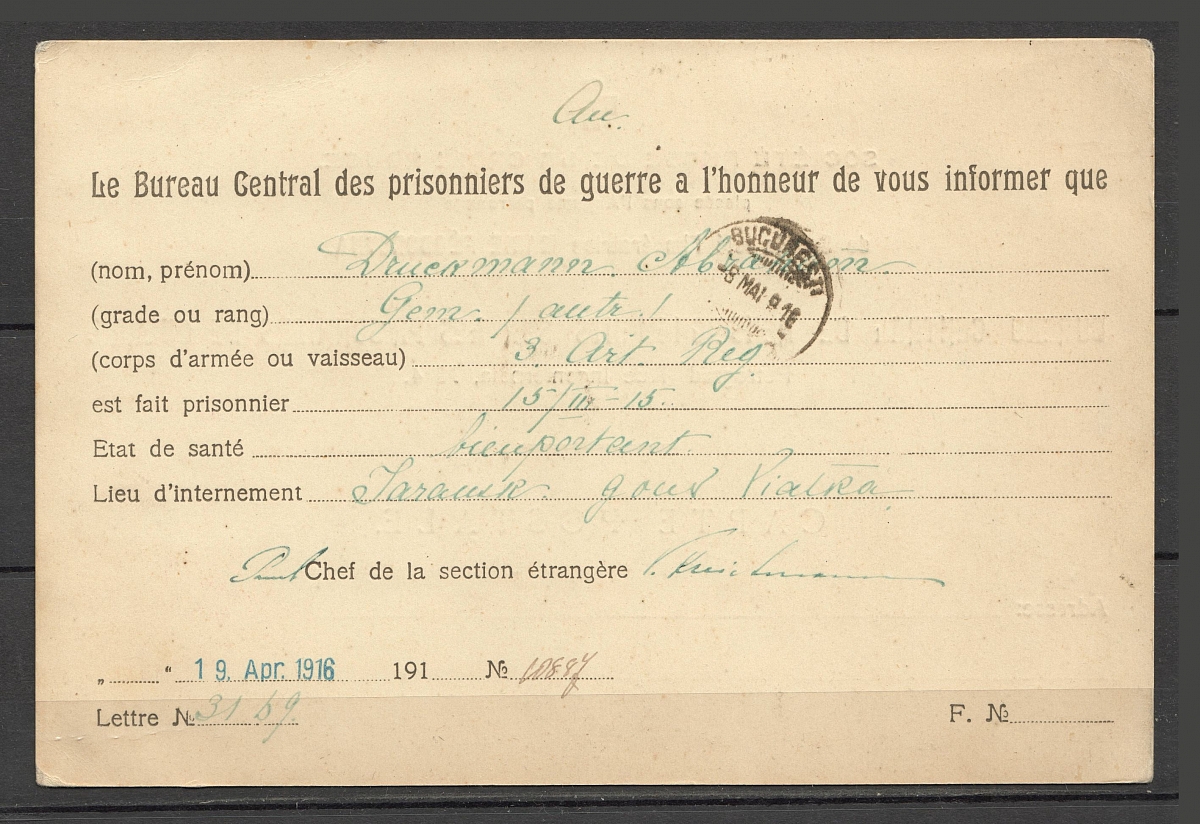 Au
Le Bureau Central des prisonniers de guerre a l'honneur de vous informer que
(nom, prénom) Druckmann Abraham
BUCURESTI
MAI 916
(grade ou rang) Gem. / autr. /
(corps d'armée ou vaisseau) 3. Art. Reg.
est fait prisonnier 15/III-15.
Etat de santé bienportant
Lieu d'internement Jaransk gouv Viatka
Chef de la section étrangère
„ “ 19. Apr. 1916 191 №
Lettre № 31
F. №
CARTE POSTALE
Adresse: